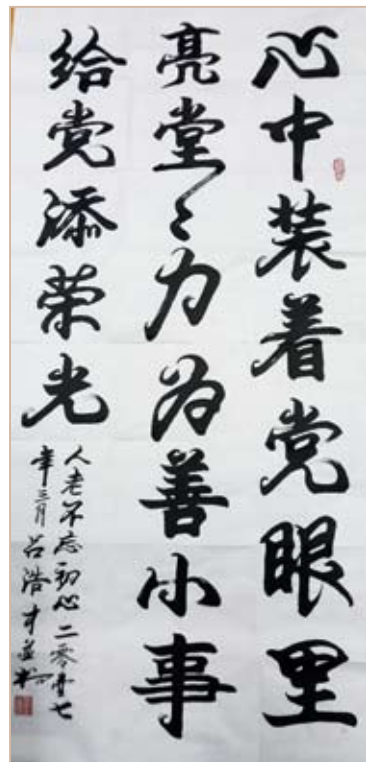 心中装着党眼里
亮堂〻力为善小事
给党添荣光
人老不忘初心二零一七
年三月吕浩才并书